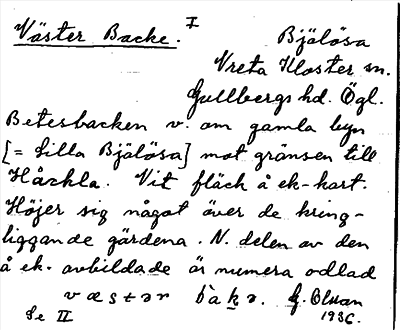 Väster Backe. I
Bjälösa
Vreta Kloster sn.
Gullbergs hd. Ögl.
Betesbacken v. om gamla byn
[= Lilla Bjälösa] mot gränsen till
Håckla. Vit fläck å ek-kart.
Höjer sig något över de kring-
liggande gärdena. N. delen av den
å ek. avbildade är numera odlad
væstər bakə.
1936.
Se II